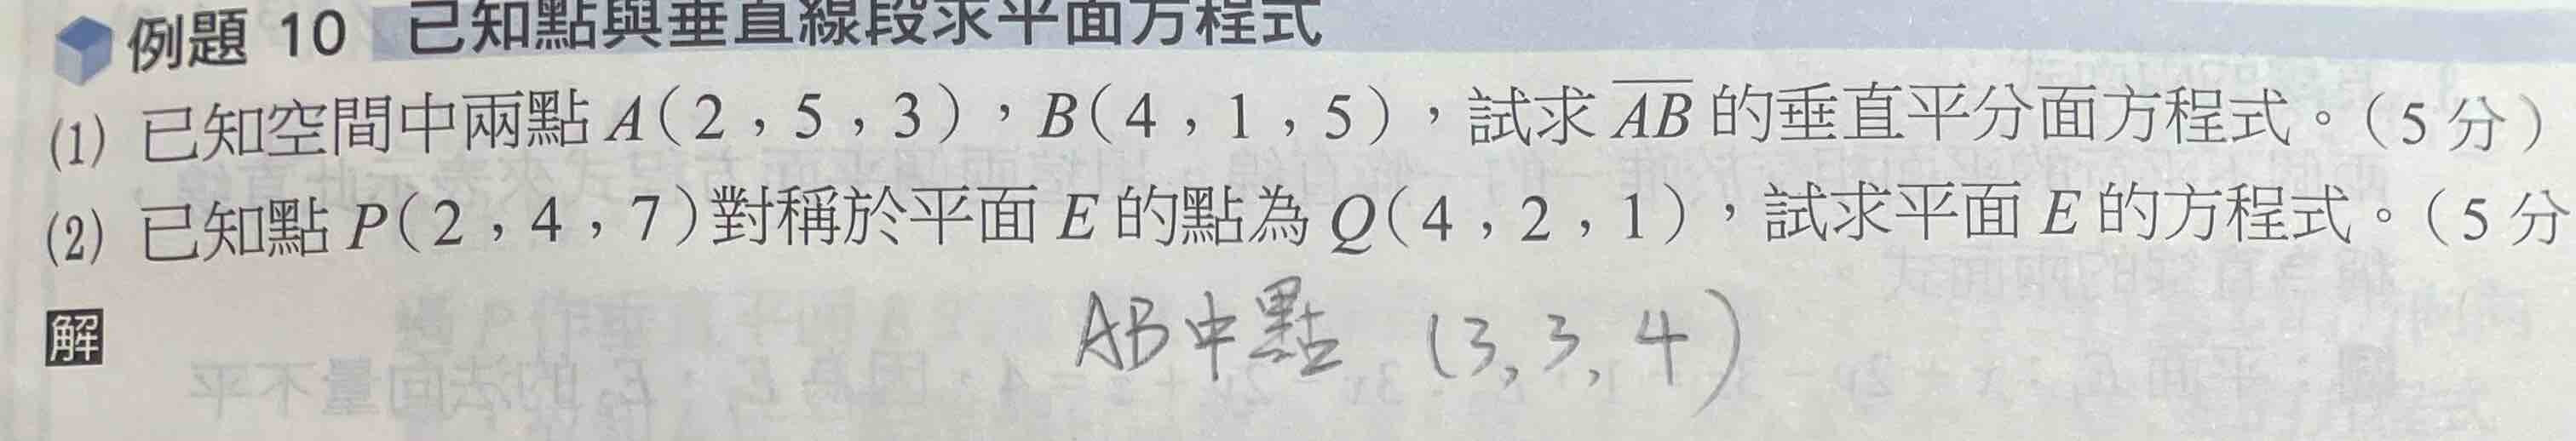 例題 10 已知點與垂直線段求平面方程式
(1) 已知空間中兩點 A(2,5,3),B(4,1,5),試求 AB 的垂直平分面方程式。(5 分)
(2) 已知點 P(2,4,7)對稱於平面 E 的點為 Q(4,2,1),試求平面 E 的方程式。(5 分
解
AB中點 (3,3,4)